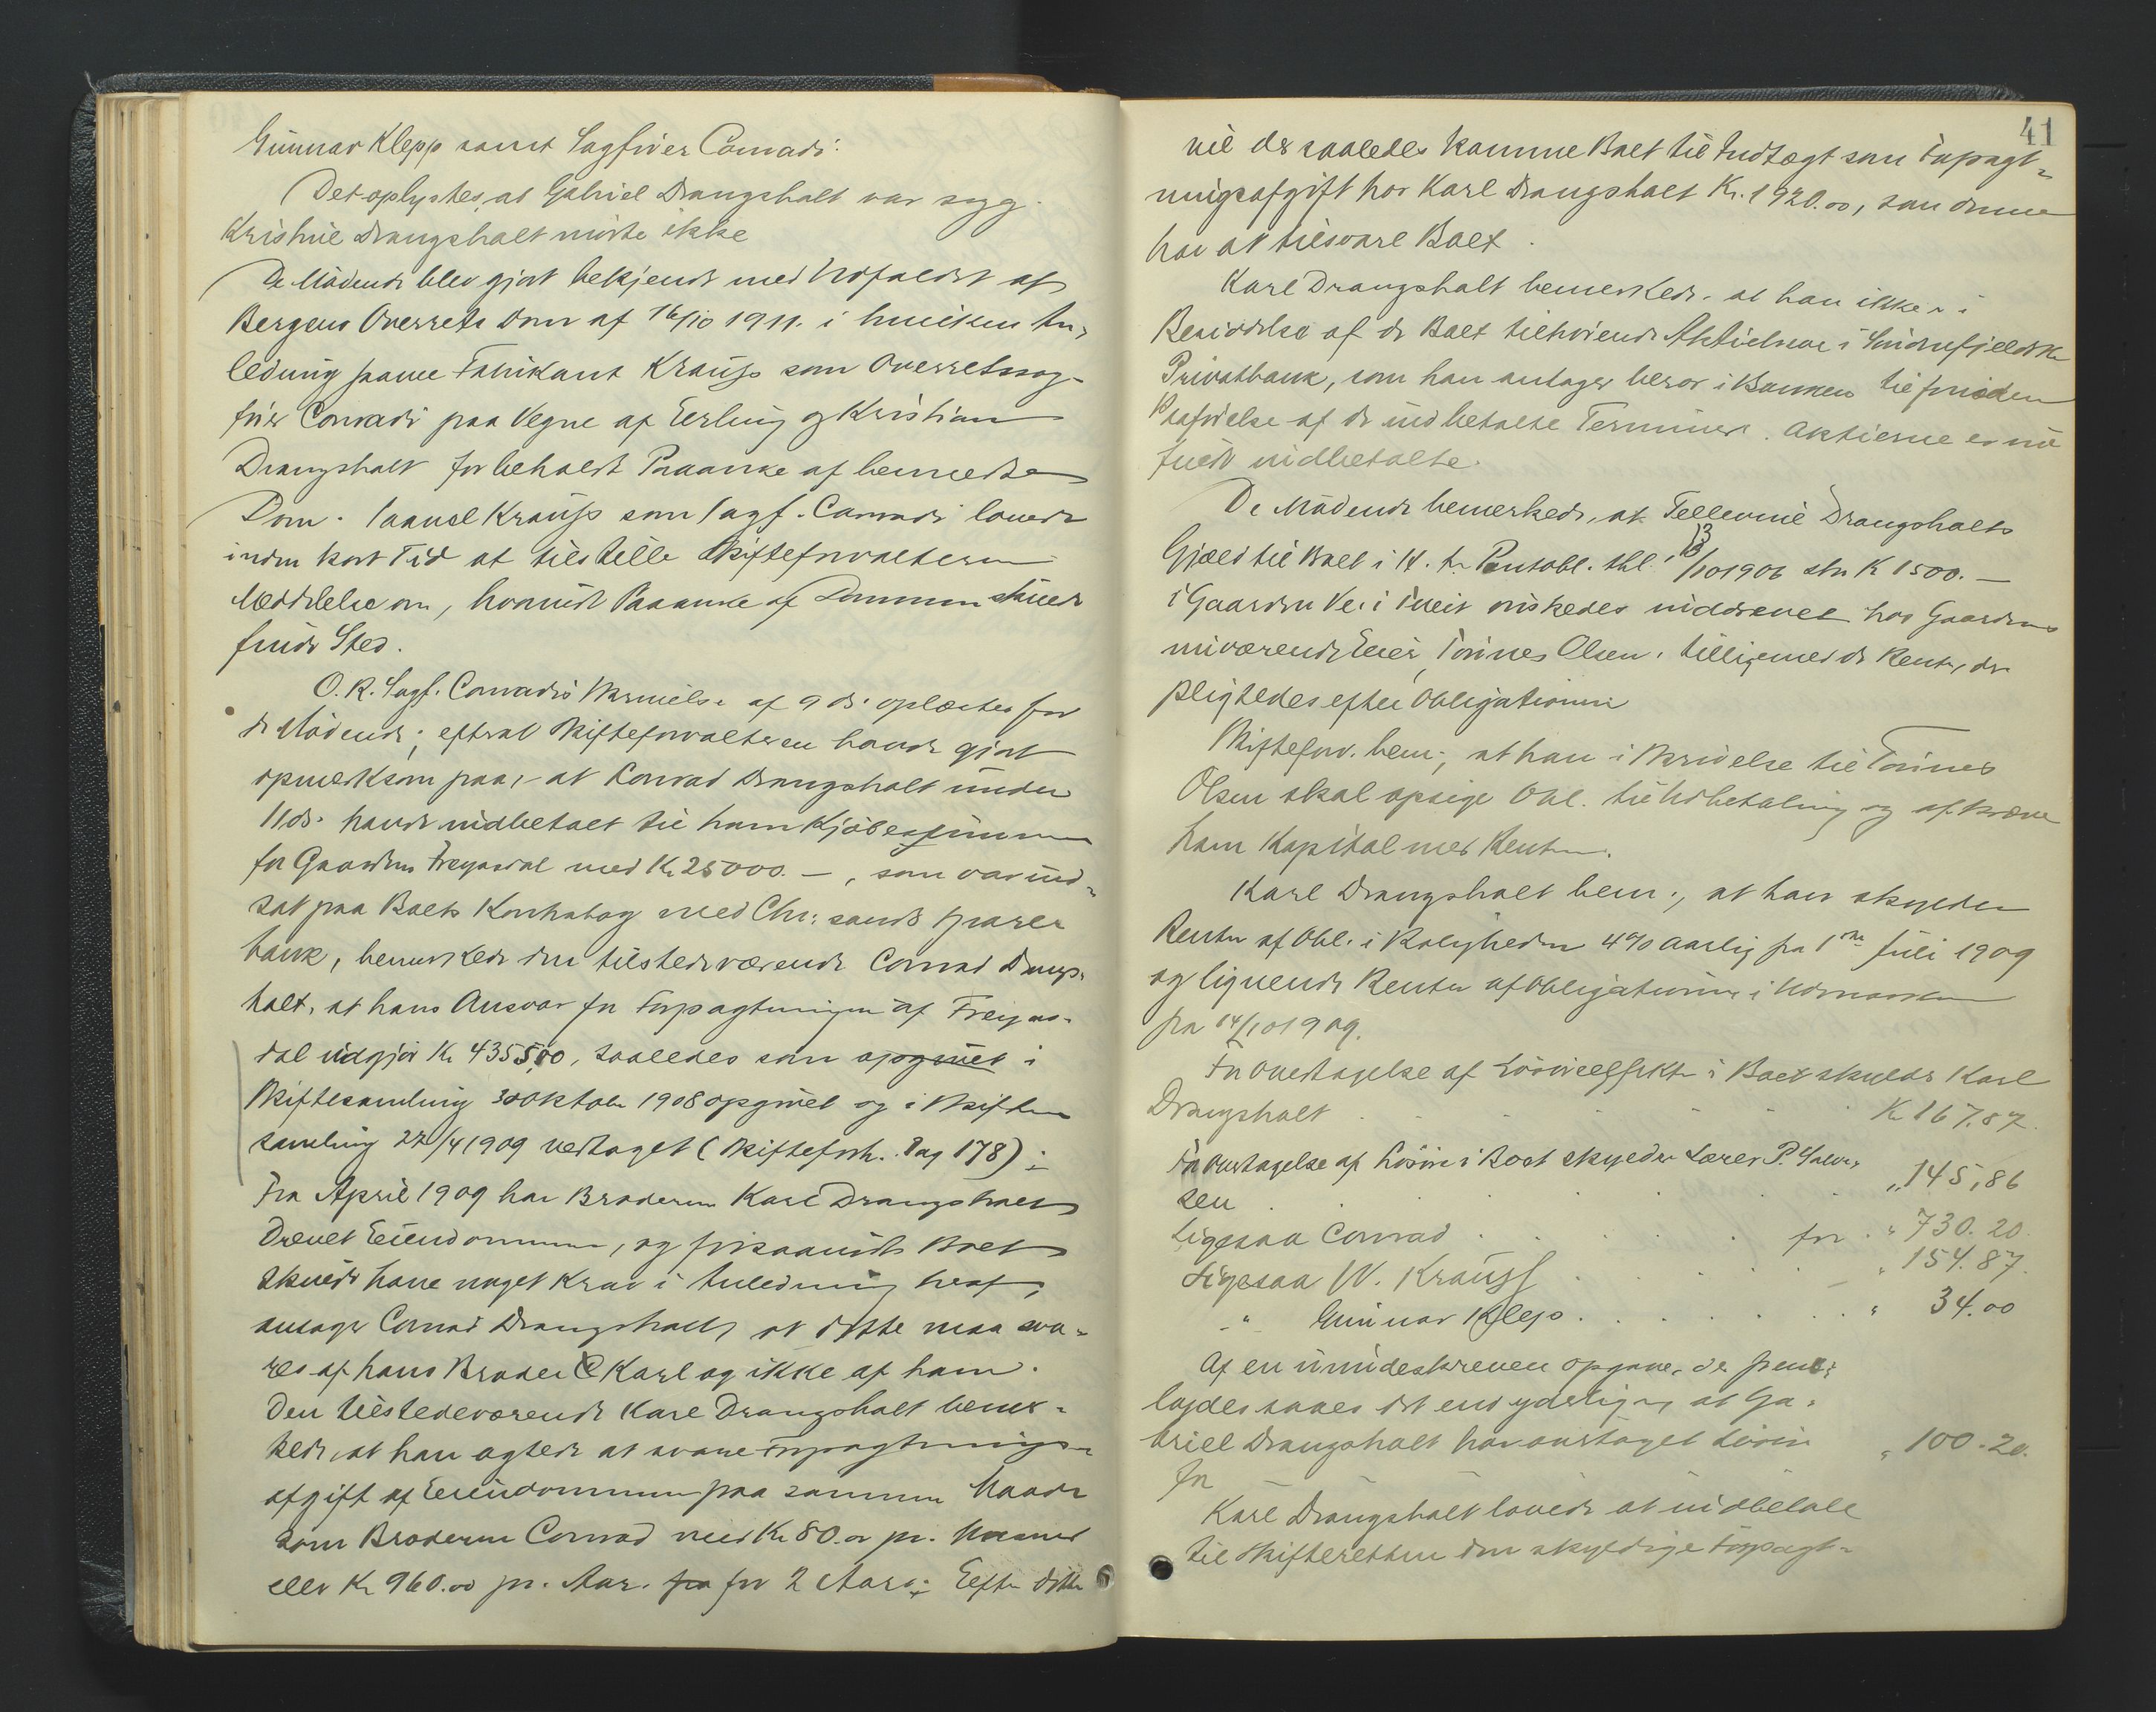 Gunnar Klepp samt Sagfører Conradi.
Det oplystes, at Gabriel Drangsholt var syg.
Kristine Drangsholt mødte ikke
De Mødende blev gjort bekjendt med Udfaldet af
Bergens Overrets Dom af 16/10 1911. i hvilken An-
ledning saavel Fabrikant Krauss som Overretssag-
fører Conradi paa Vegne af Erling og Kristian
Drangsholt forbeholdt Paaanke af bemeldte
Dom. Saavel Krauss som Sagf. Conradi lovede
inden kort Tid at tilstille Skifteforvalteren
Meddelelse om, hvorvidt Paaanke af Dommen skulde
finde Sted.
O.R.Sagf. Conradis Skrivelse af 9 ds. oplæstes for
de Mødende; efterat Skifteforvalteren havde gjort
opmerksom paa, at Conrad Drangsholt under
11 ds. havde indbetalt til ham Kjøbesummen
for Gaarden Frejasdal med Kr 25000.—, som var ind-
sat paa Boets Kontrabog med Chr.sands Spare-
bank, bemerkede den tilstedeværende Conrad Drangs-
holt, at hans Ansvar for Forpagtningen af Freijas-
dal udgjør Kr 4355,00, saaledes som opgivet i
Skiftesamling 30 Oktober 1908 opgivet og i Skifte-
samling 22/4 1909 vedtaget (Skifteforh. Pag 178);
Fra April 1909 har Broderen Karl Drangsholt
drevet Eiendommen, og forsaavidt Boet
skulde have noget Krav i Anledning heraf,
antager Conrad Drangsholt, at dette maa sva-
res af hans Broder Karl og ikke af ham.
Den tilstedeværende Karl Drangsholt bemer-
kede, at han agtede at svare Forpagtnings-
afgift af Eiendommen paa samme Maade
som Broderen Conrad med Kr 80.00 pr. Maaned
eller Kr 960.00 pr. Aar. fra for 2 Aar.; Efter dette
41
vil der saaledes komme Boet til Indtægt som Forpagt-
ningsafgift hos Karl Drangsholt Kr. 1920.00, som denne
har at tilsvare Boet.
Karl Drangsholt bemerkede, at han ikke er i
Besiddelse af de Boet tilhørende Aktiebreve i Søndenfjeldske
Privatbank, som han antager beror i Banken til
af de indbetalte Terminer. Aktierne er nu
fuldt indbetalte.
De Mødende bemerkede, at Drangsholts
Gjæld til Boet i H. t. Pantobl. thl. 13/10 1906 str. Kr 1500.—
i Gaarden Ve. i Tveit ønskedes inddrevet hos Gaardens
nuværende Eier, Tønnes Olsen, tilligemed de Renter, der
pligtedes efter Obligationen
Skifteforv. bem., at han i Skrivelse til Tønnes
Olsen skal opsige Obl. til Udbetaling og afkræve
ham Kapital med Renter.
Karl Drangsholt bem., at han skylder
Renter af Obl. i Boligheden 4% aarlig fra 1ste Juli 1909
og lignende Renter af Obligationen i Udmarken
fra 14/10 1909.
For Overtagelse af Løsøreeffekter i Boet skylder Karl
Drangsholt . . . . . . Kr 167.87.
For Overtagelse af Løsøre i Boet skylder Lærer P. Salve-
sen . . . . . . „ 145,86
Ligesaa Conrad . . . . . for . „ 730.20
Ligesaa W. Krauss . . . . — „ 154.87.
—„— Gunnar Klepp . . . . . . „ 34.00
Af en Opgave, der frem-
lagdes saaes det end yderligere, at Ga-
briel Drangsholt har overtaget Løsøre
for — — — — „ 100.20.
Karl Drangsholt lovede at indbetale
til Skifteretten den skyldige Forpagt-